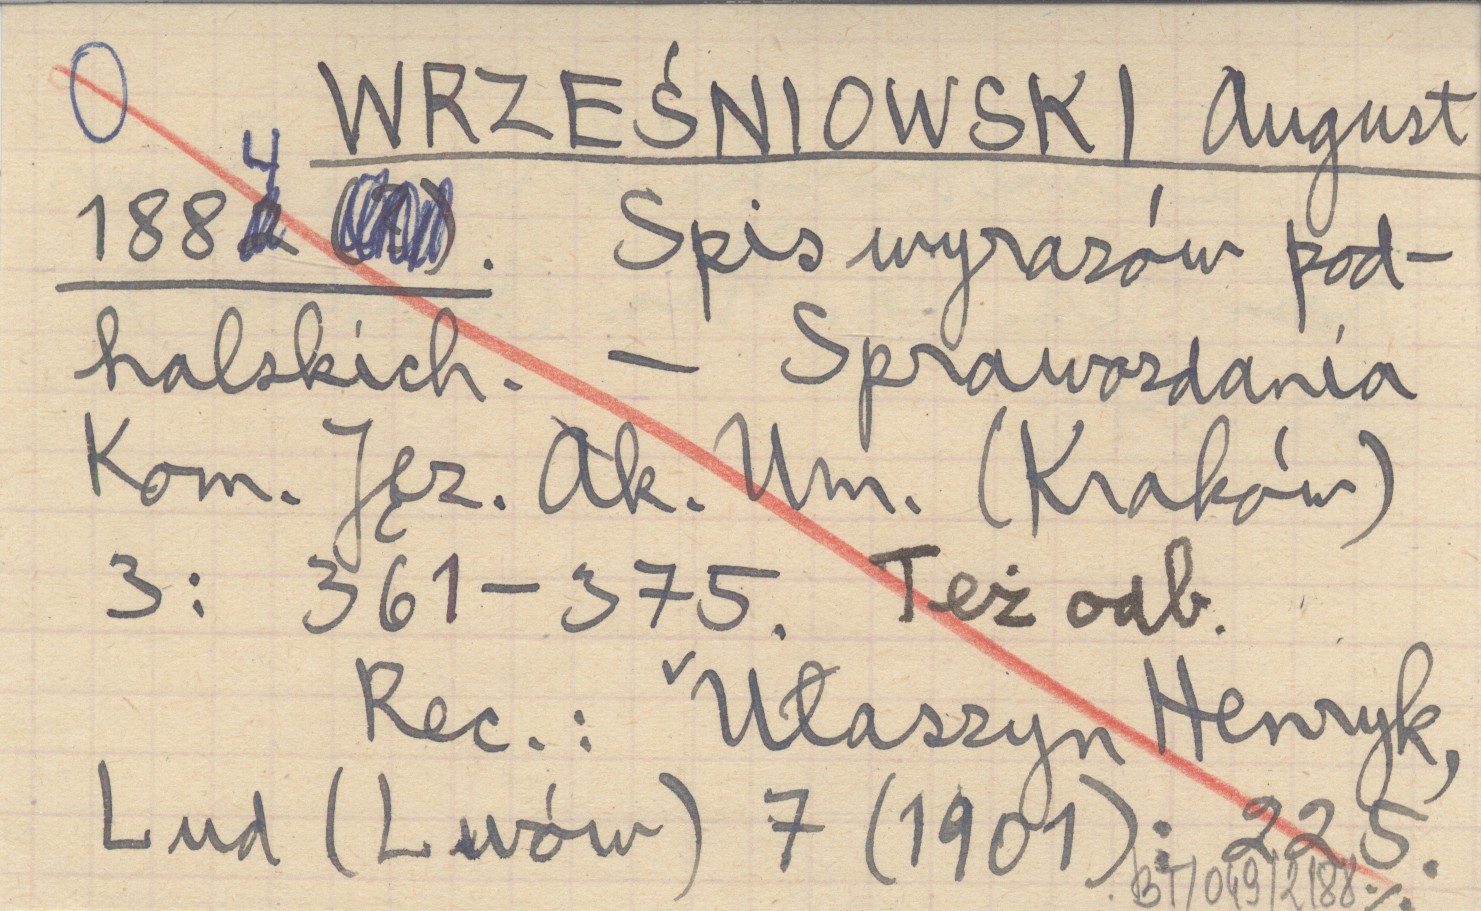 WRZEŚNIOWSKI August
1884. Spis wyrazów pod-
halskich. — Sprawozdania
Kom. Jęz. Ak. Um. (Kraków)
3: 361-375. Też odb.
Rec.: Ułaszyn Henryk,
Lud (Lwów) 7 (1901): 225.
BT/049/2188